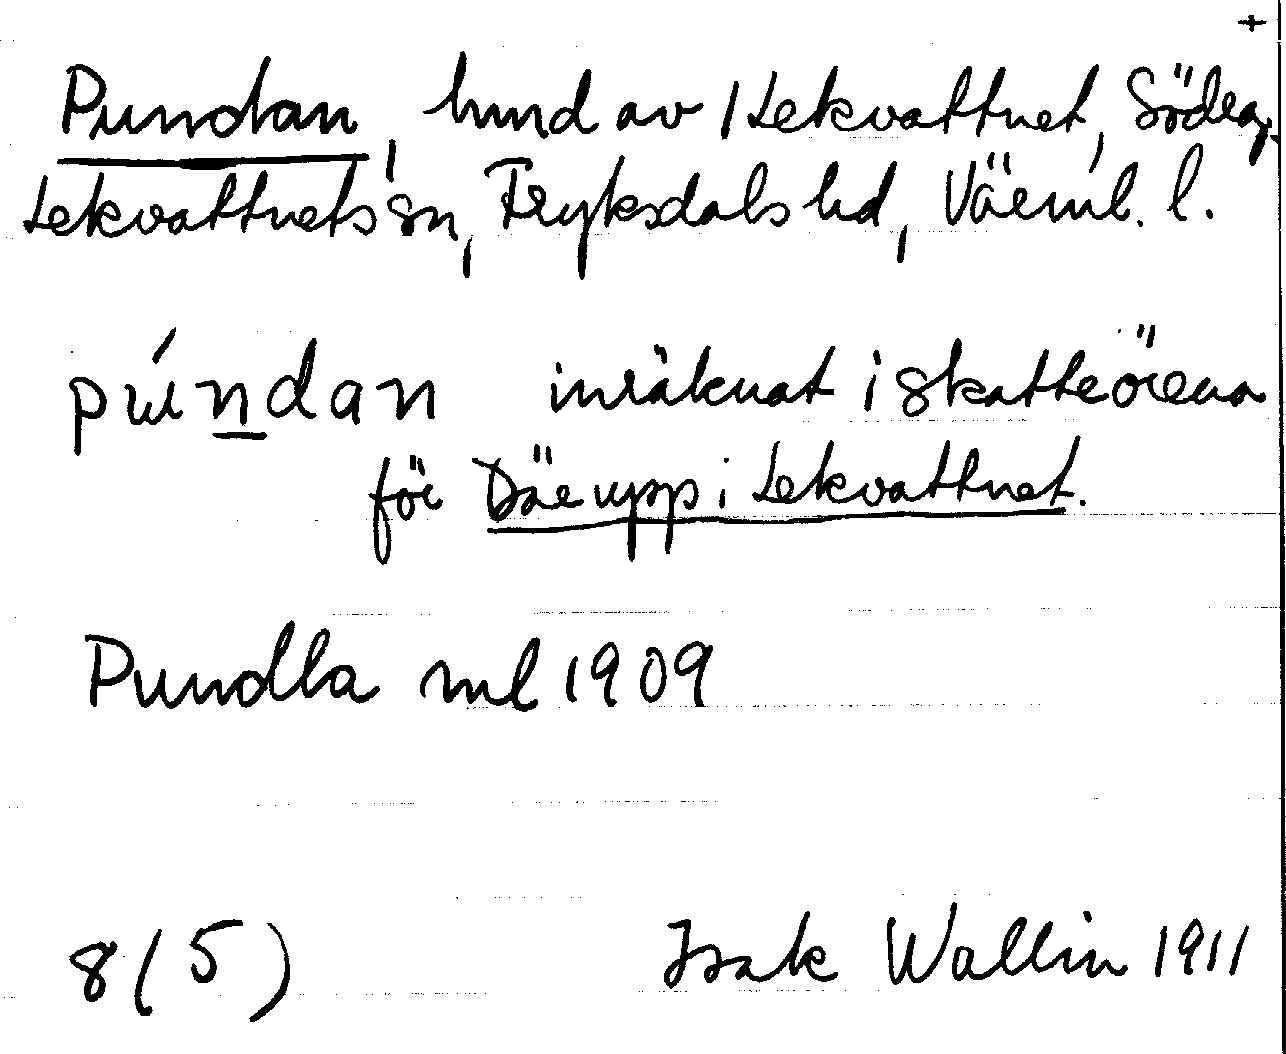 +
Pundan, hmnd av 1 Lekvattnet, Södra,
Lekvattnets sn, Fryksdals hd, Värml. l.
púndan inräknat i skatteörena
för Där upp i Lekvattnet.
Pundla ml 1909
8 (5) Isak Wallin 1911